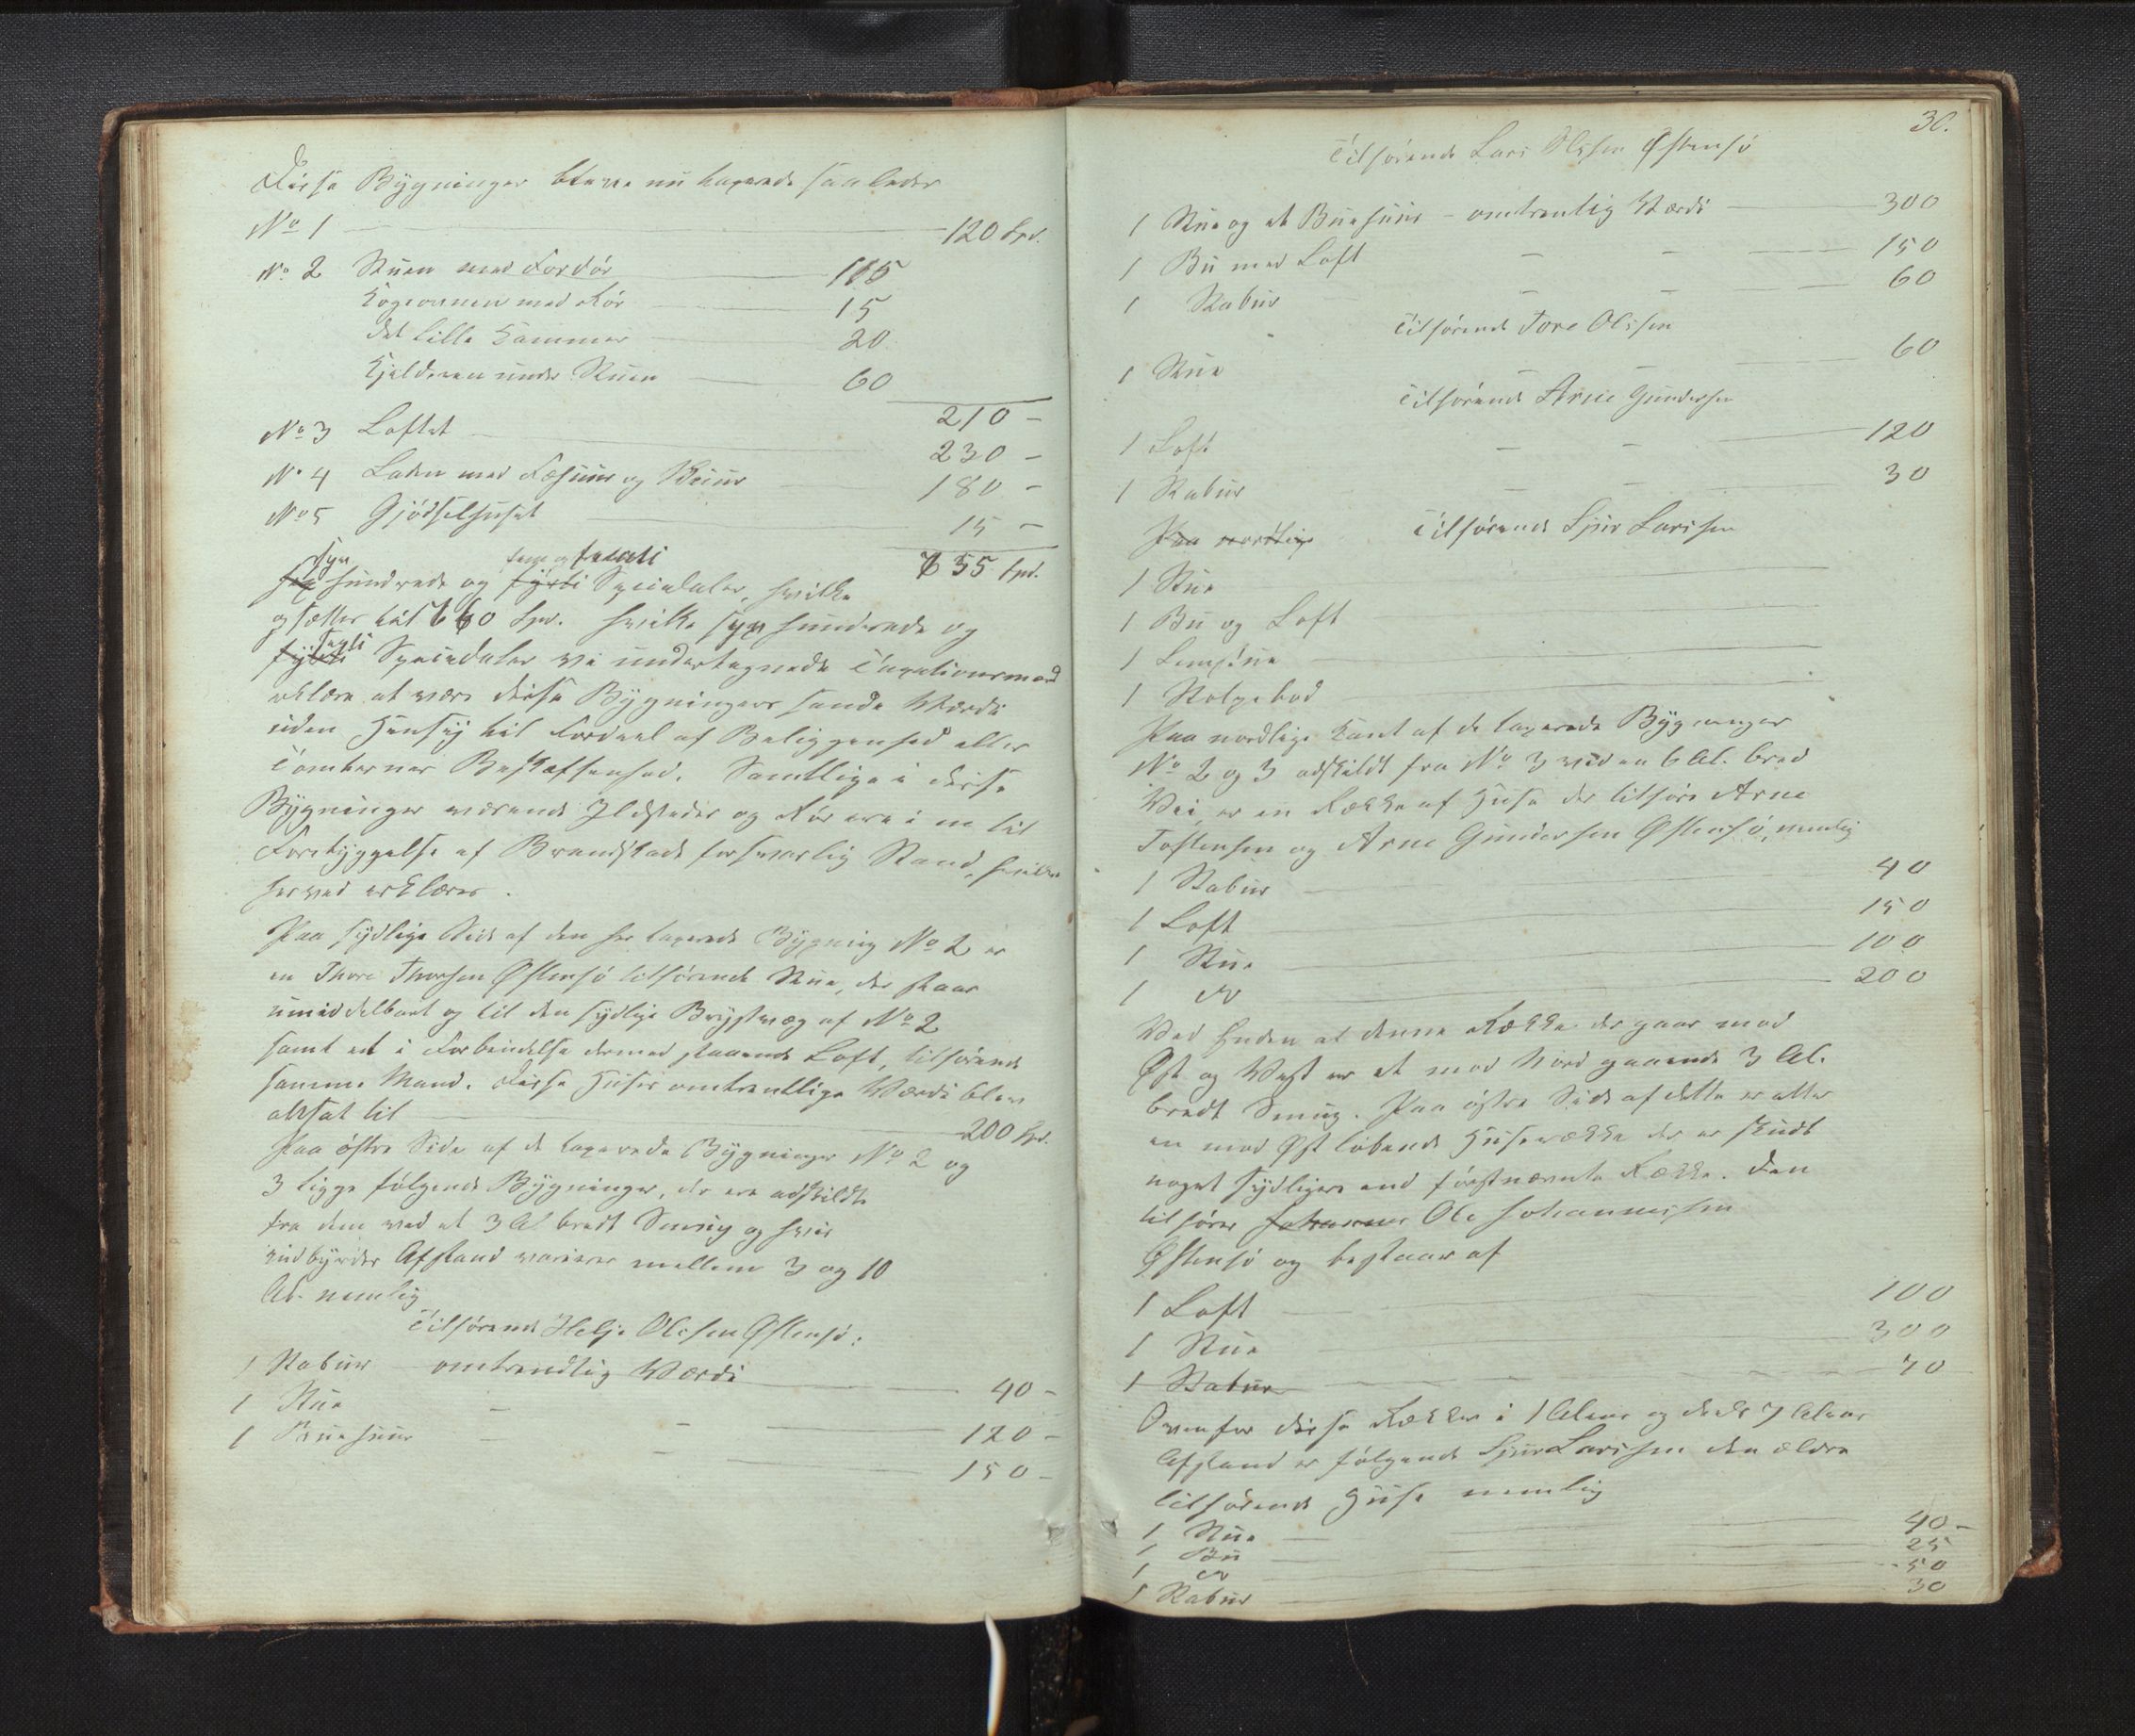 Disse Bygninger bleve nu taxerede saaledes
No 1 120 Spd.
No 2 Stuen med Fordör 115
Kogeovnen med Rör 15
det lille Kammer 20
Kjelderen under Stuen 60
210 -
No 3 Loftet 230 -
No 4 Laden med Fæhuus og 180 -
No 5 Gjödselhuset 15 -
755 Spd.
syv fem og femti
sex hundrede og fyrti Speciedaler, hvilke
ogsættes til 760 Spd. hvilke syv hundrede og
sexti
fyrti Speciedaler vi undertegnede Taxationsmænd
erklære at være disse Bygningers sande Værdi
uden Hensyn til Fordeel af Beliggenhed eller
Tomternes Beskaffenhed. Samtlige i disse
Bygninger værende Ildsteder og Rör ere i en til
Forebyggelse af Brandskade forsvarlig Stand, hvilket
herved erklæres.
Paa sydlige Side af den her taxerede Bygning No 2 er
en Thore Thorsen Østensö tilhörende Stue, der staar
umiddelbart og til den sydlige Brystvæg af No 2
samt et i Forbindelse dermed staaende Loft, tilhörende
samme Mand. Disse Huses omtrentlige Værdi blev
ansat til 200 Spd.
Paa östre Side af de taxerede Bygninger No 2 og
3 ligge fölgende Bygninger, der ere adskildte
fra dem ved et 3 Al bredt Smug og hvis
indbyrdes Afstand varierer mellem 3 og 10
Al. nemlig
Tilhörende Helje Olsen Østensö:
1 Stabur omtrendtlig Værdi 40 -
1 Stue - - 120 -
1 - - 150 -
30.
Tilhörende Lars Olsen Østensö
1 Stue og et - omtrentlig Værdi 300
1 Bu med Loft - - 150
1 Stabur - - 60
Tilhörende Tore Olsen
1 Stue - - 60
Tilhörende Arne Gundersen
1 Loft - - 120
1 Stabur - - 30
Paa nordlige Tilhörende Sjur Larssen
1 Stue
1 Bu og Loft
1
1 Stolpebod
Paa nordlige Kant af de taxerede Bygninger
No 2 og 3 adskildt fra No 3 ved en 6 Al. bred
Vei, er en Række af Huse der tilhöre Arne
Tostensen og Arne Gundersen Østensö, nemlig
1 Stabur 40
1 Loft 150
1 Stue 100
1 do 200
Ved Enden af denne Række der gaar mod
Øst og Vest er et mod Nord gaaende 3 Al.
bredt Smug. Paa östre Side af dette er atter
en mod Øst löbende Huserække der er skudt
noget sydligere end förstnævnte Række. Den
tilhörer Johannes Ole Johannessen
Østensö og bestaar af
1 Loft 100
1 Stue 300
1 Stabur 70
Ovenfor disse Rækker i 1 Alens og deels 7 Alens
Afstand er fölgende Sjur Larssen den ældre
tilhörende Huse nemlig
1 Stue 40 -
1 Bu 25
1 do 50
1 Stabur 30